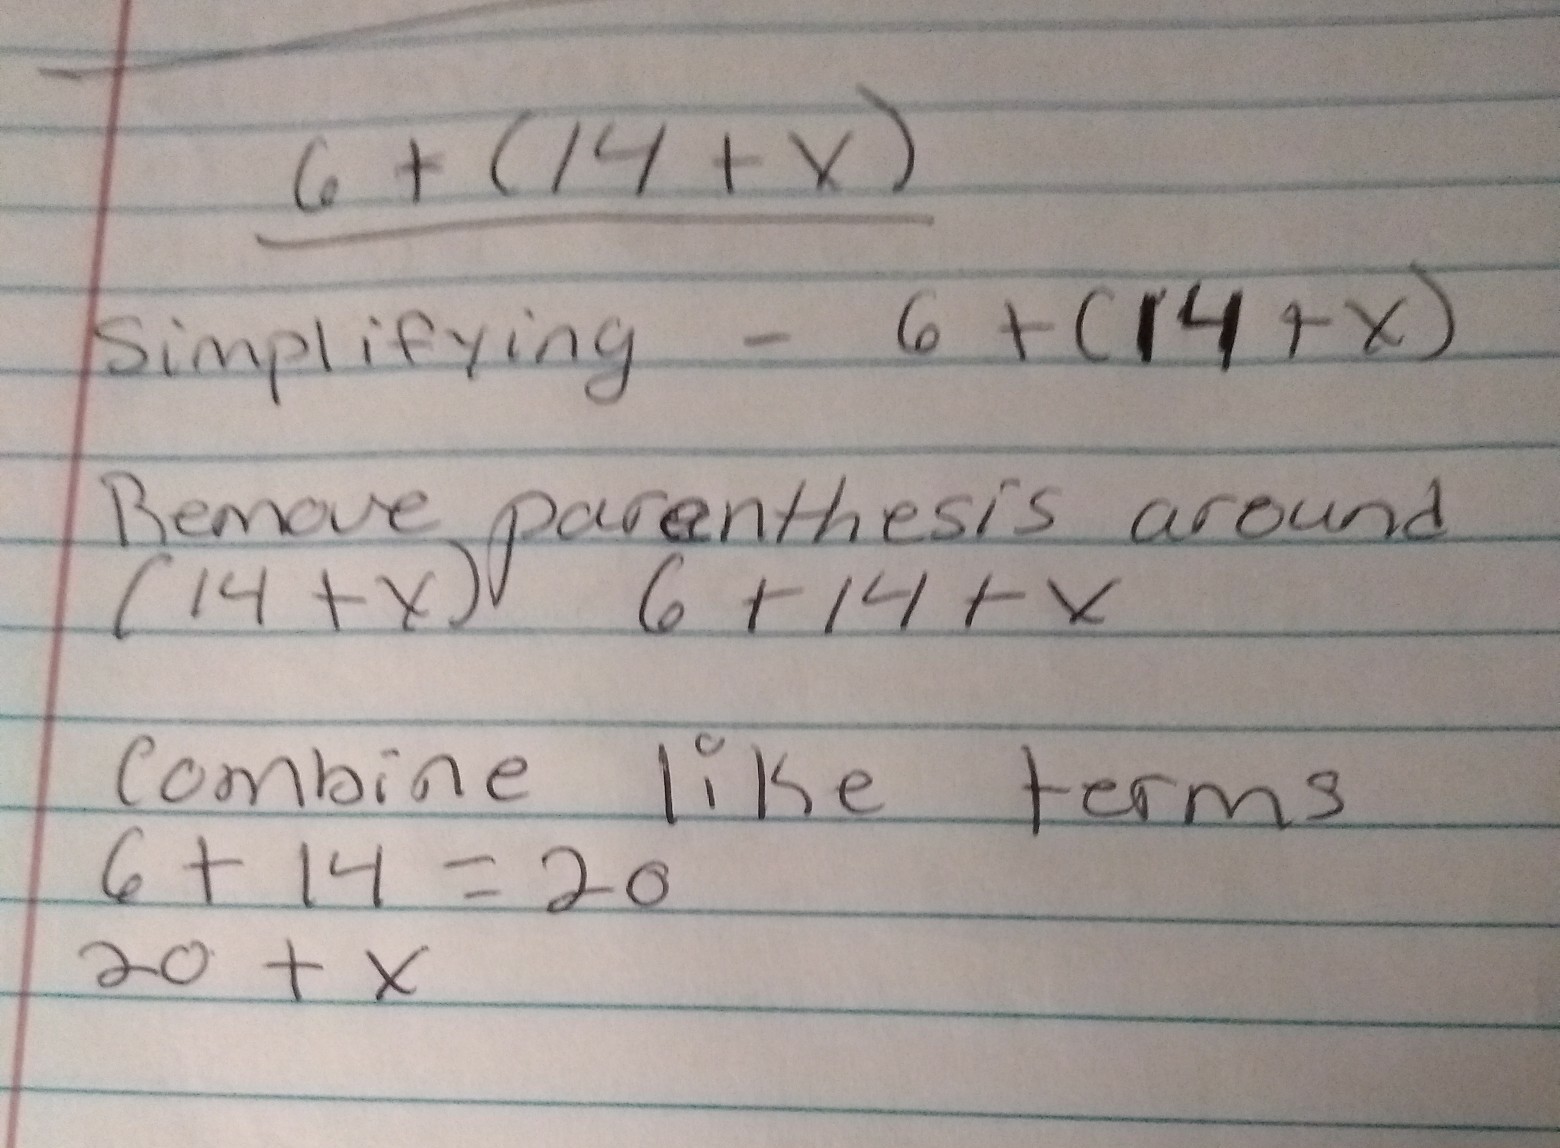 6 + (14 + x)
Simplifying - 6 + (14 + x)
Remove parenthesis around
(14 + x) 6 + 14 + x
Combine like terms
6 + 14 = 20
20 + x